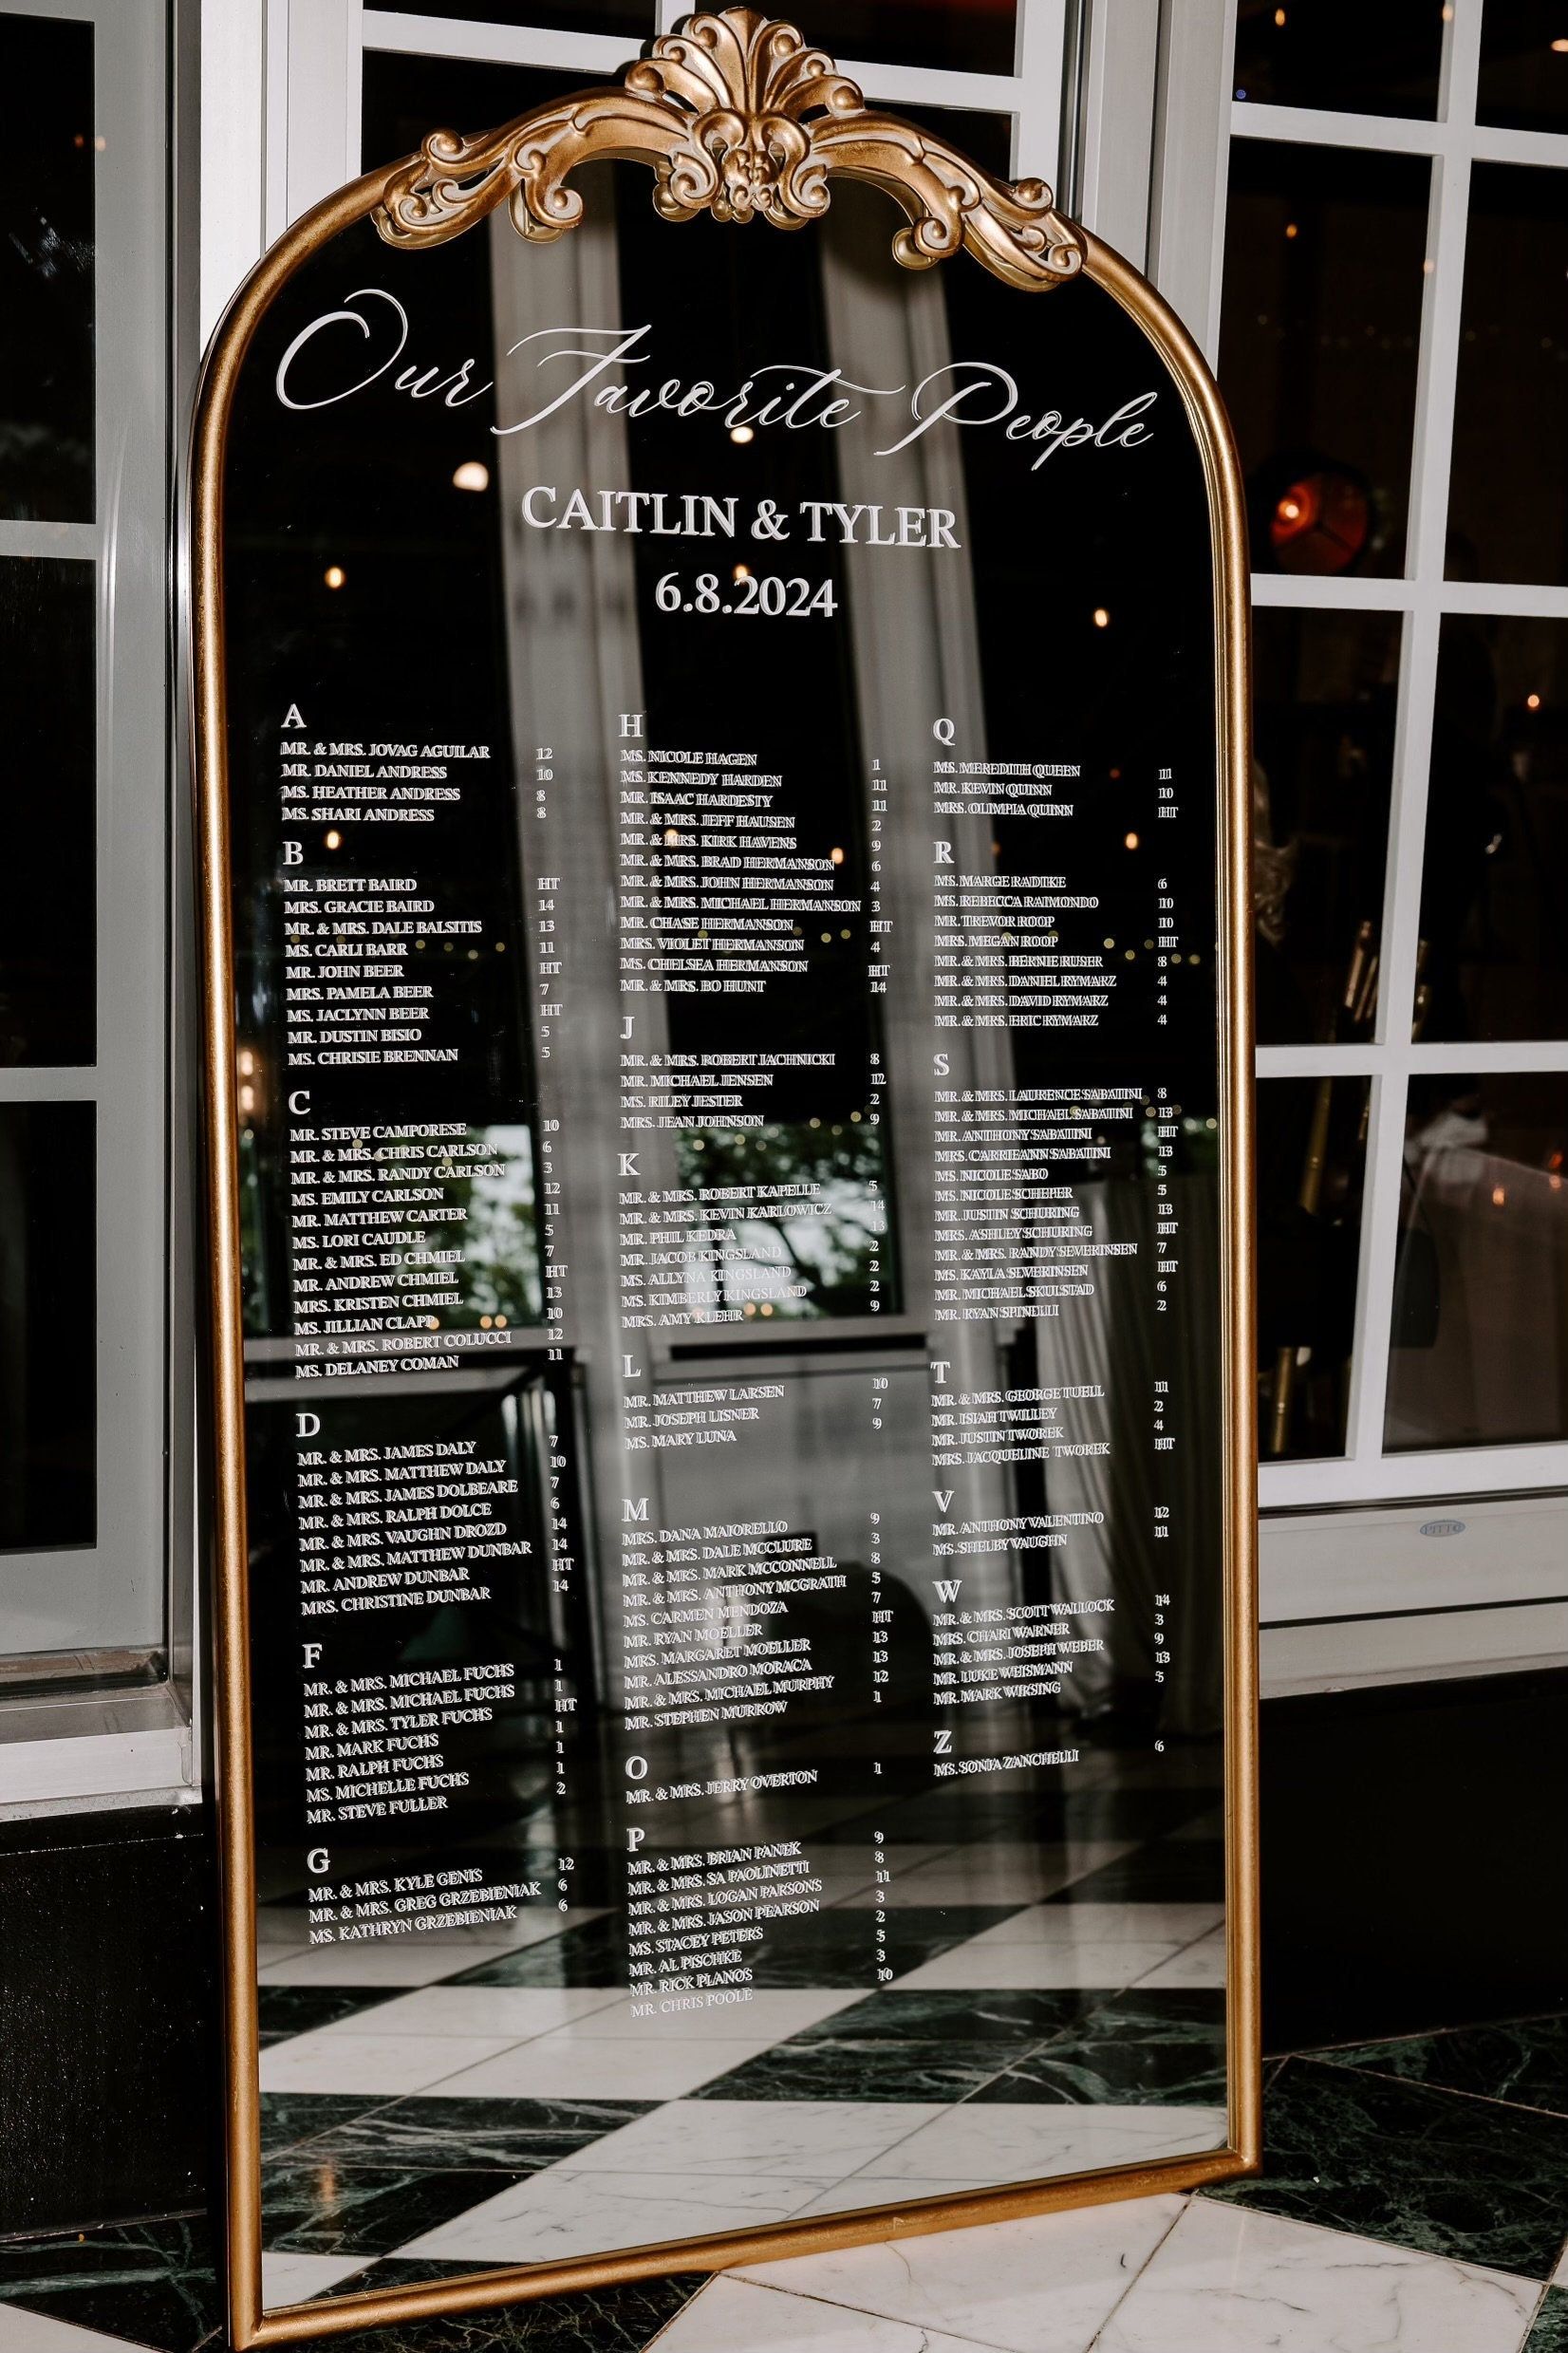 Our Favorite People
CAITLIN & TYLER
6.8.2024
A
MR. & MRS. JOVAG AGUILAR 12
MR. DANIEL ANDRESS 10
MS. HEATHER ANDRESS 8
MS. SHARI ANDRESS 8
B
MR. BRETT BAIRD HT
MRS. GRACIE BAIRD 14
MR. & MRS. DALE BALSITIS 13
MS. CARLI BARR 11
MR. JOHN BEER HT
MRS. PAMELA BEER 7
MS. JACLYNN BEER HT
MR. DUSTIN BISIO 5
MS. CHRISIE BRENNAN 5
C
MR. STEVE CAMPORESE 10
MR. & MRS. CHRIS CARLSON 6
MR. & MRS. RANDY CARLSON 3
MS. EMILY CARLSON 12
MR. MATTHEW CARTER 11
MS. LORI CAUDLE 5
MR. & MRS. ED CHMIEL 7
MR. ANDREW CHMIEL HT
MRS. KRISTEN CHMIEL 13
MS. JILLIAN CLAPP 10
MR. & MRS. ROBERT COLUCCI 12
MS. DELANEY COMAN 11
D
MR. & MRS. JAMES DALY 7
MR. & MRS. MATTHEW DALY 10
MR. & MRS. JAMES DOLBEARE 7
MR. & MRS. RALPH DOLCE 6
MR. & MRS. VAUGHN DROZD 14
MR. & MRS. MATTHEW DUNBAR 14
MR. ANDREW DUNBAR HT
MRS. CHRISTINE DUNBAR 14
F
MR. & MRS. MICHAEL FUCHS 1
MR. & MRS. MICHAEL FUCHS 1
MR. & MRS. TYLER FUCHS HT
MR. MARK FUCHS 1
MR. RALPH FUCHS 1
MS. MICHELLE FUCHS 1
MR. STEVE FULLER 2
G
MR. & MRS. KYLE GENIS 12
MR. & MRS. GREG GRZEBIENIAK 6
MS. KATHRYN GRZEBIENIAK 6
H
MS. NICOLE HAGEN 1
MS. KENNEDY HARDEN 11
MR. ISAAC HARDESTY 11
MR. & MRS. JEFF HAUSEN 2
MR. & MRS. KIRK HAVENS 9
MR. & MRS. BRAD HERMANSON 6
MR. & MRS. JOHN HERMANSON 4
MR. & MRS. MICHAEL HERMANSON 3
MR. CHASE HERMANSON HT
MRS. VIOLET HERMANSON 4
MS. CHELSEA HERMANSON HT
MR. & MRS. BO HUNT 14
J
MR. & MRS. ROBERT JACHNICKI 8
MR. MICHAEL JENSEN 12
MS. RILEY JESTER 2
MRS. JEAN JOHNSON 9
K
MR. & MRS. ROBERT KAPELLE 5
MR. & MRS. KEVIN KARLOWICZ 14
MR. PHIL KEDRA 13
MR. JACOB KINGSLAND 2
MS. ALLYNA KINGSLAND 2
MS. KIMBERLY KINGSLAND 2
MRS. AMY KLEHR 9
L
MR. MATTHEW LARSEN 10
MR. JOSEPH LISNER 7
MS. MARY LUNA 9
M
MRS. DANA MAIORELLO 9
MR. & MRS. DALE MCCLURE 3
MR. & MRS. MARK MCCONNELL 8
MR. & MRS. ANTHONY MCGRATH 5
MS. CARMEN MENDOZA 7
MR. RYAN MOELLER HT
MRS. MARGARET MOELLER 13
MR. ALESSANDRO MORACA 13
MR. & MRS. MICHAEL MURPHY 12
MR. STEPHEN MURROW 1
O
MR. & MRS. JERRY OVERTON 1
P
MR. & MRS. BRIAN PANEK 9
MR. & MRS. SA PAOLINETTI 8
MR. & MRS. LOGAN PARSONS 11
MR. & MRS. JASON PEARSON 3
MS. STACEY PETERS 2
MR. AL PISCHKE 5
MR. RICK PLANOS 3
MR. CHRIS POOLE 10
Q
MS. MEREDITH QUEEN 11
MR. KEVIN QUINN 10
MRS. OLIMPIA QUINN HT
R
MS. MARGE RADIKE 6
MS. REBECCA RAIMONDO 10
MR. TREVOR ROOP 10
MRS. MEGAN ROOP HT
MR. & MRS. BERNIE RUSER 8
MR. & MRS. DANIEL RYMARZ 4
MR. & MRS. DAVID RYMARZ 4
MR. & MRS. ERIC RYMARZ 4
S
MR. & MRS. LAURENCE SABATINI 8
MR. & MRS. MICHAEL SABATINI 13
MR. ANTHONY SABATINI HT
MRS. CARRIEANN SABATINI 13
MS. NICOLE SABO 5
MS. NICOLE SCHEPER 5
MR. JUSTIN SCHURING 13
MRS. ASHLEY SCHURING HT
MR. & MRS. RANDY SEVERINSEN 7
MS. KAYLA SEVERINSEN HT
MR. MICHAEL SKULSTAD 6
MR. RYAN SPINELLI 2
T
MR. & MRS. GEORGE TUELL 11
MR. ISIAH TWILLEY 2
MR. JUSTIN TWOREK 4
MRS. JACQUELINE TWOREK HT
V
MR. ANTHONY VALENTINO 12
MS. SHELBY VAUGHN 11
W
MR. & MRS. SCOTT WALLOCK 14
MRS. CHARI WARNER 3
MR. & MRS. JOSEPH WEBER 9
MR. LUKE WEISMANN 13
MR. MARK WIRSING 5
Z
MS. SONJA ZANCHELLI 6